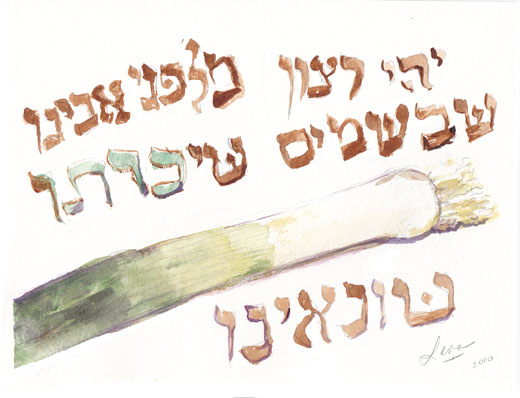 יהי רצון מלפני אבינו
שבשמים שיכרתו
שונאינו
Leora
2010